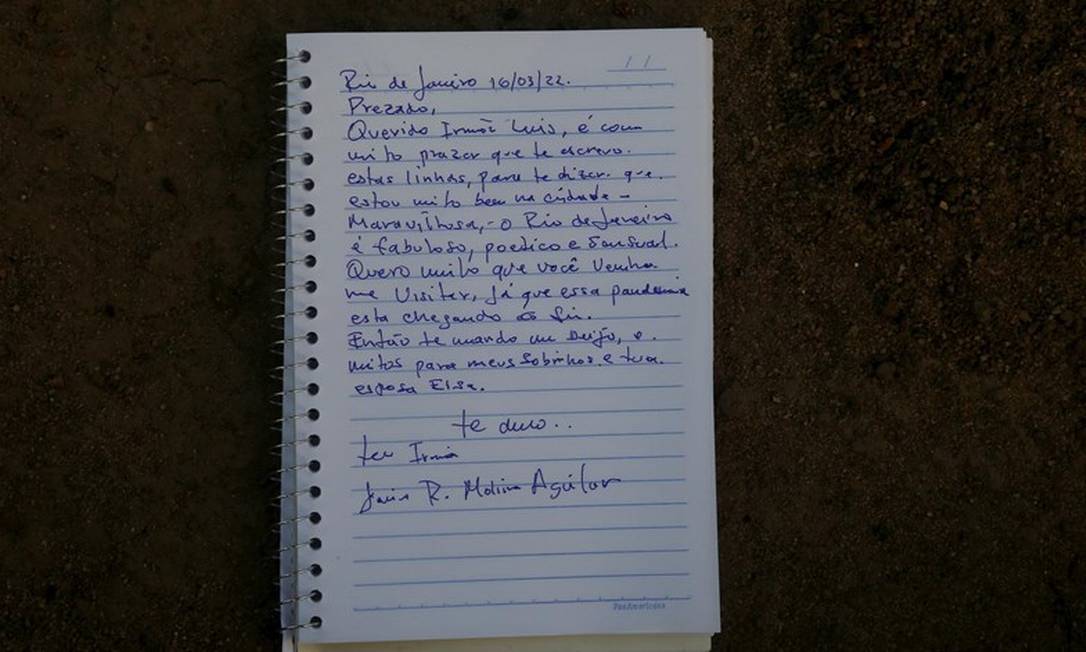 Rio de Janeiro 16/03/22.
/ /
Prezado,
Querido Irmão Luis, é com
muito prazer que te escrevo.
estas linhas, para te dizer. que.
estou muito bem na cidade -
Maravilhosa, - o Rio de Janeiro
é fabuloso, poetico e Sensual.
Quero muito que você Venha
me Visitar, Já que essa pandemia
esta chegando ao fin.
Então te mando um Beijo, e.
muitos para meus Sobrinhos. e tua.
esposa Elsa.
te
teu Irmão
R. Molina Aguilar
PanAmericana